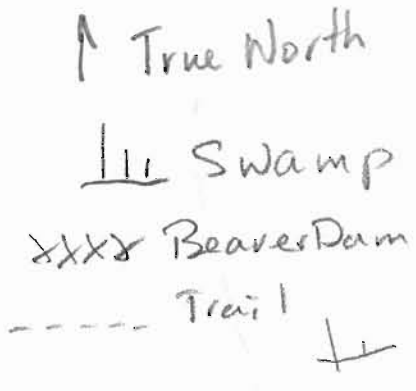 True North
Swamp
xxxx BeaverDam
Trail